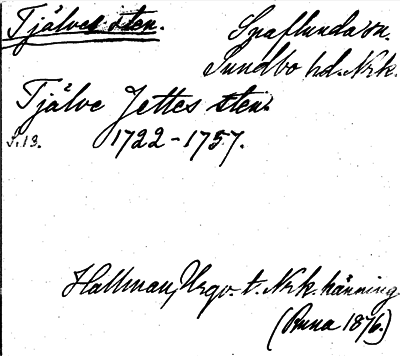 Tjälves sten.
Svaflunda sn.
Sundbo hd. Nrk.
Tjälve Jettes sten.
s. 13. 1722-1757.
Hallman, Urgv. t. Nrk. hänning
(Runa 1876.)